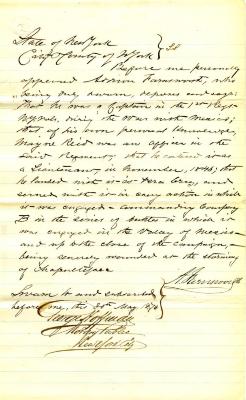 State of New York
City & County of N York } SS
Before me personally
appeared Addison Farnsworth, who
being duly sworn, deposes and says:
That he was a Captain in the 1st Regt
N.Y. Vols, during the War with Mexico;
that, of his own personal knowledge,
Mayne Reid was an officer in the
said Regiment; that he entered it as a
Lieutenant, in November, 1846; that
he landed with it at Vera Cruz, and
served with it in every action in which
it was engaged - commanding Company
B in the series of battles in which it
was engaged in the Valley of Mexico -
and up to the close of the campaign,
being severely wounded at the storming
of Chapultepec
A. Farnsworth
Sworn to and subscribed
before me, this 30th May 1874
Notary Public
New York City